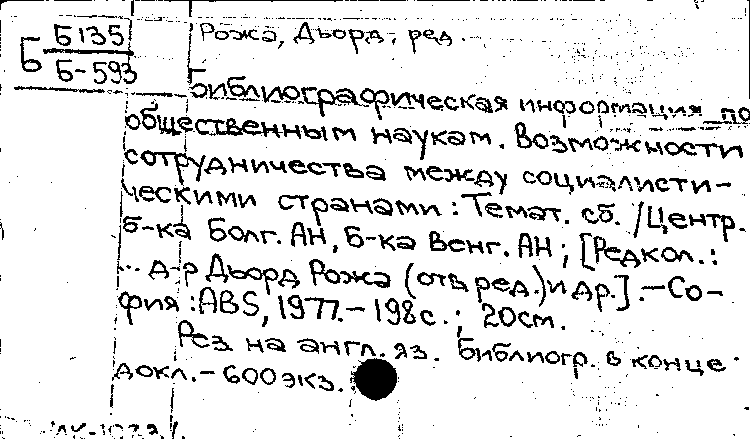 Б Б135
Б-593
Рожа, Дьорд, ред.
Библиографическая информация по
общественным наукам. Возможности
сотрудничества между социалисти-
ческими странами: Темат. сб. /Центр.
б-ка Болг. АН, Б-ка Венг. АН; [Редкол.:
... д-р Дьорд Рожа (отв. ред.) и др.]. - Со-
фия: ABS, 1977. - 198 с.; 20 см.
Рез. на англ. яз. Библиогр. в конце
докл. - 600 экз.